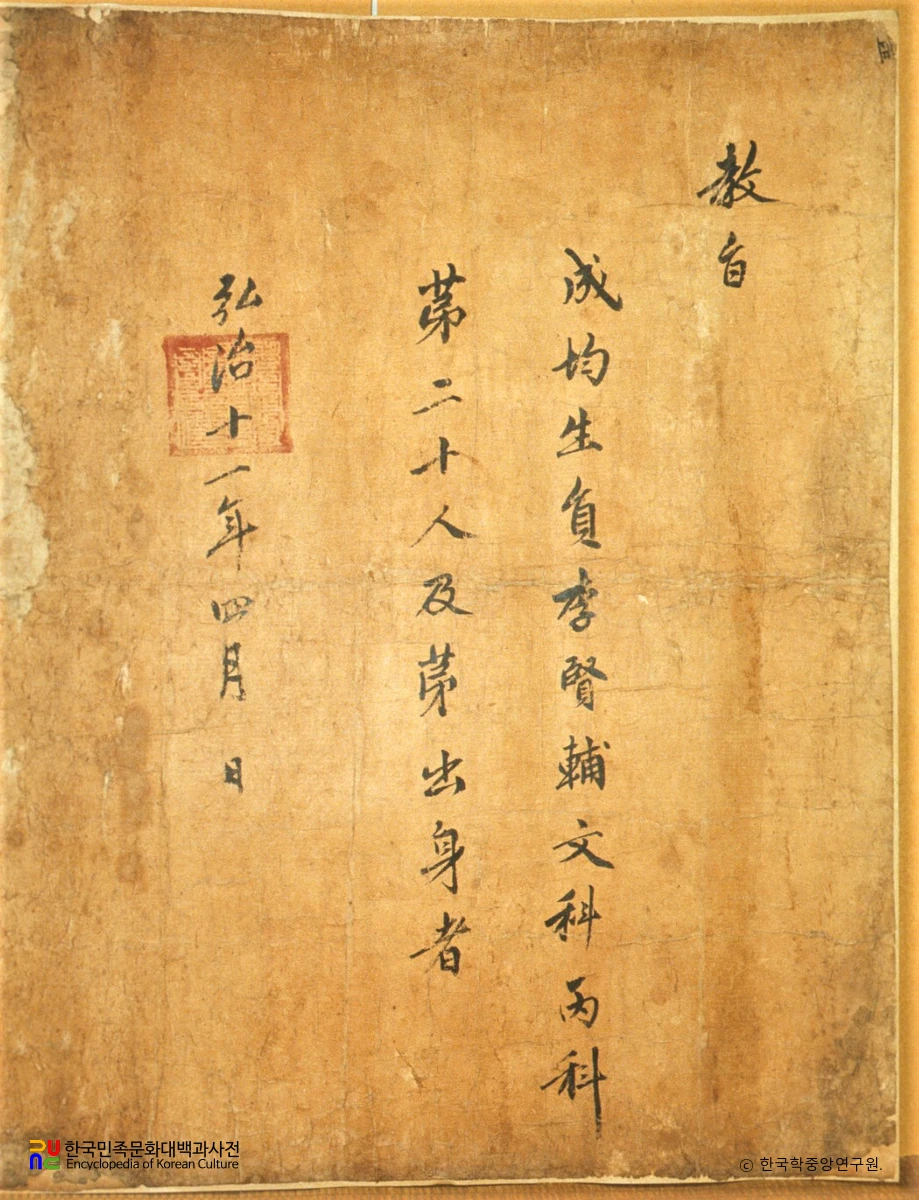 教旨
成均生負李賢輔文科丙科
第二十人及第出身者
弘治十一年四月 日
한국민족문화대백과사전
Encyclopedia of Korean Culture
ⓒ 한국학중앙연구원.